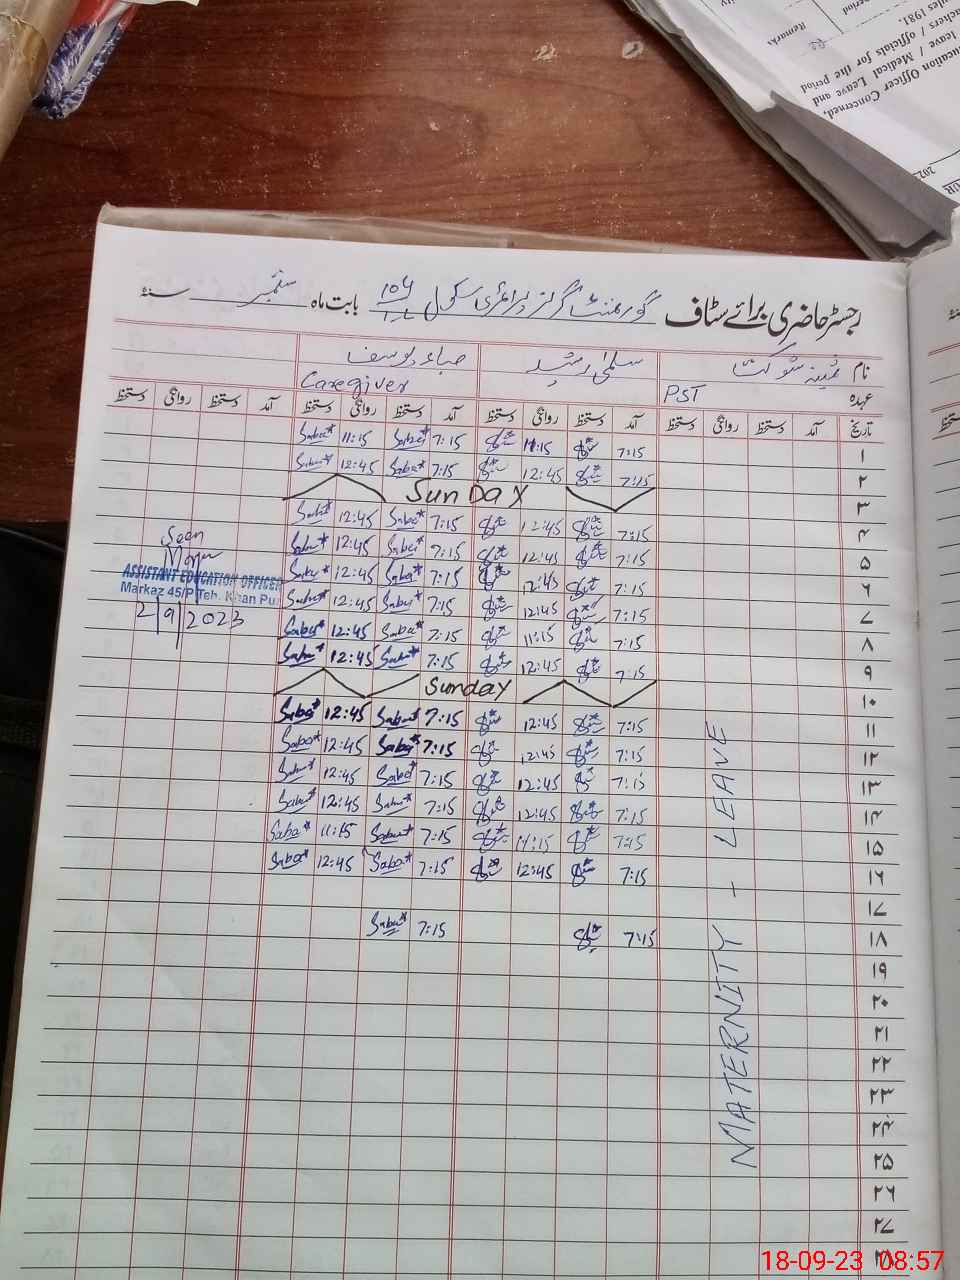 Education Officer Concerned,
leave / Medical Leave and
teachers / officials for the period
rules 1981.
Remarks
رجسٹر حاضری برائے سٹاف گورنمنٹ گرلز پرائمری سکول 104 بابت ماہ ستمبر سنہ
نام ثمینہ شوکت سلمیٰ رشید صباء یوسف
عہدہ PST Caregiver
تاریخ آمد دستخط روانگی دستخط آمد دستخط روانگی دستخط آمد دستخط روانگی دستخط آمد دستخط روانگی دستخط
۱ 7:15 11:15 7:15 Saba 11:15 Saba
۲ 7:15 12:45 7:15 Saba 12:45 Saba
۳ SunDAY
۴ 7:15 12:45 7:15 Saba 12:45 Saba
۵ 7:15 12:45 7:15 Saba 12:45 Saba
۶ 7:15 12:45 7:15 Saba 12:45 Saba
۷ 7:15 12:45 7:15 Saba 12:45 Saba
۸ 7:15 11:15 7:15 Saba 12:45 Saba
۹ 7:15 12:45 7:15 Saba 12:45 Saba
۱۰ Sunday
۱۱ 7:15 12:45 7:15 Saba 12:45 Saba
۱۲ 7:15 12:45 7:15 Saba 12:45 Saba
۱۳ 7:15 12:45 7:15 Saba 12:45 Saba
۱۴ 7:15 12:45 7:15 Saba 12:45 Saba
۱۵ 7:15 11:15 7:15 Saba 11:15 Saba
۱۶ 7:15 12:45 7:15 Saba 12:45 Saba
۱۷
۱۸ 7:15 7:15 Saba
۱۹
۲۰
۲۱
۲۲
۲۳
۲۴
۲۵
۲۶
۲۷
۲۸
MATERNITY - LEAVE
Seen
ASSISTANT EDUCATION OFFICER
Markaz 45/P Teh. Khan Pur
2/9/2023
18-09-23 08:57